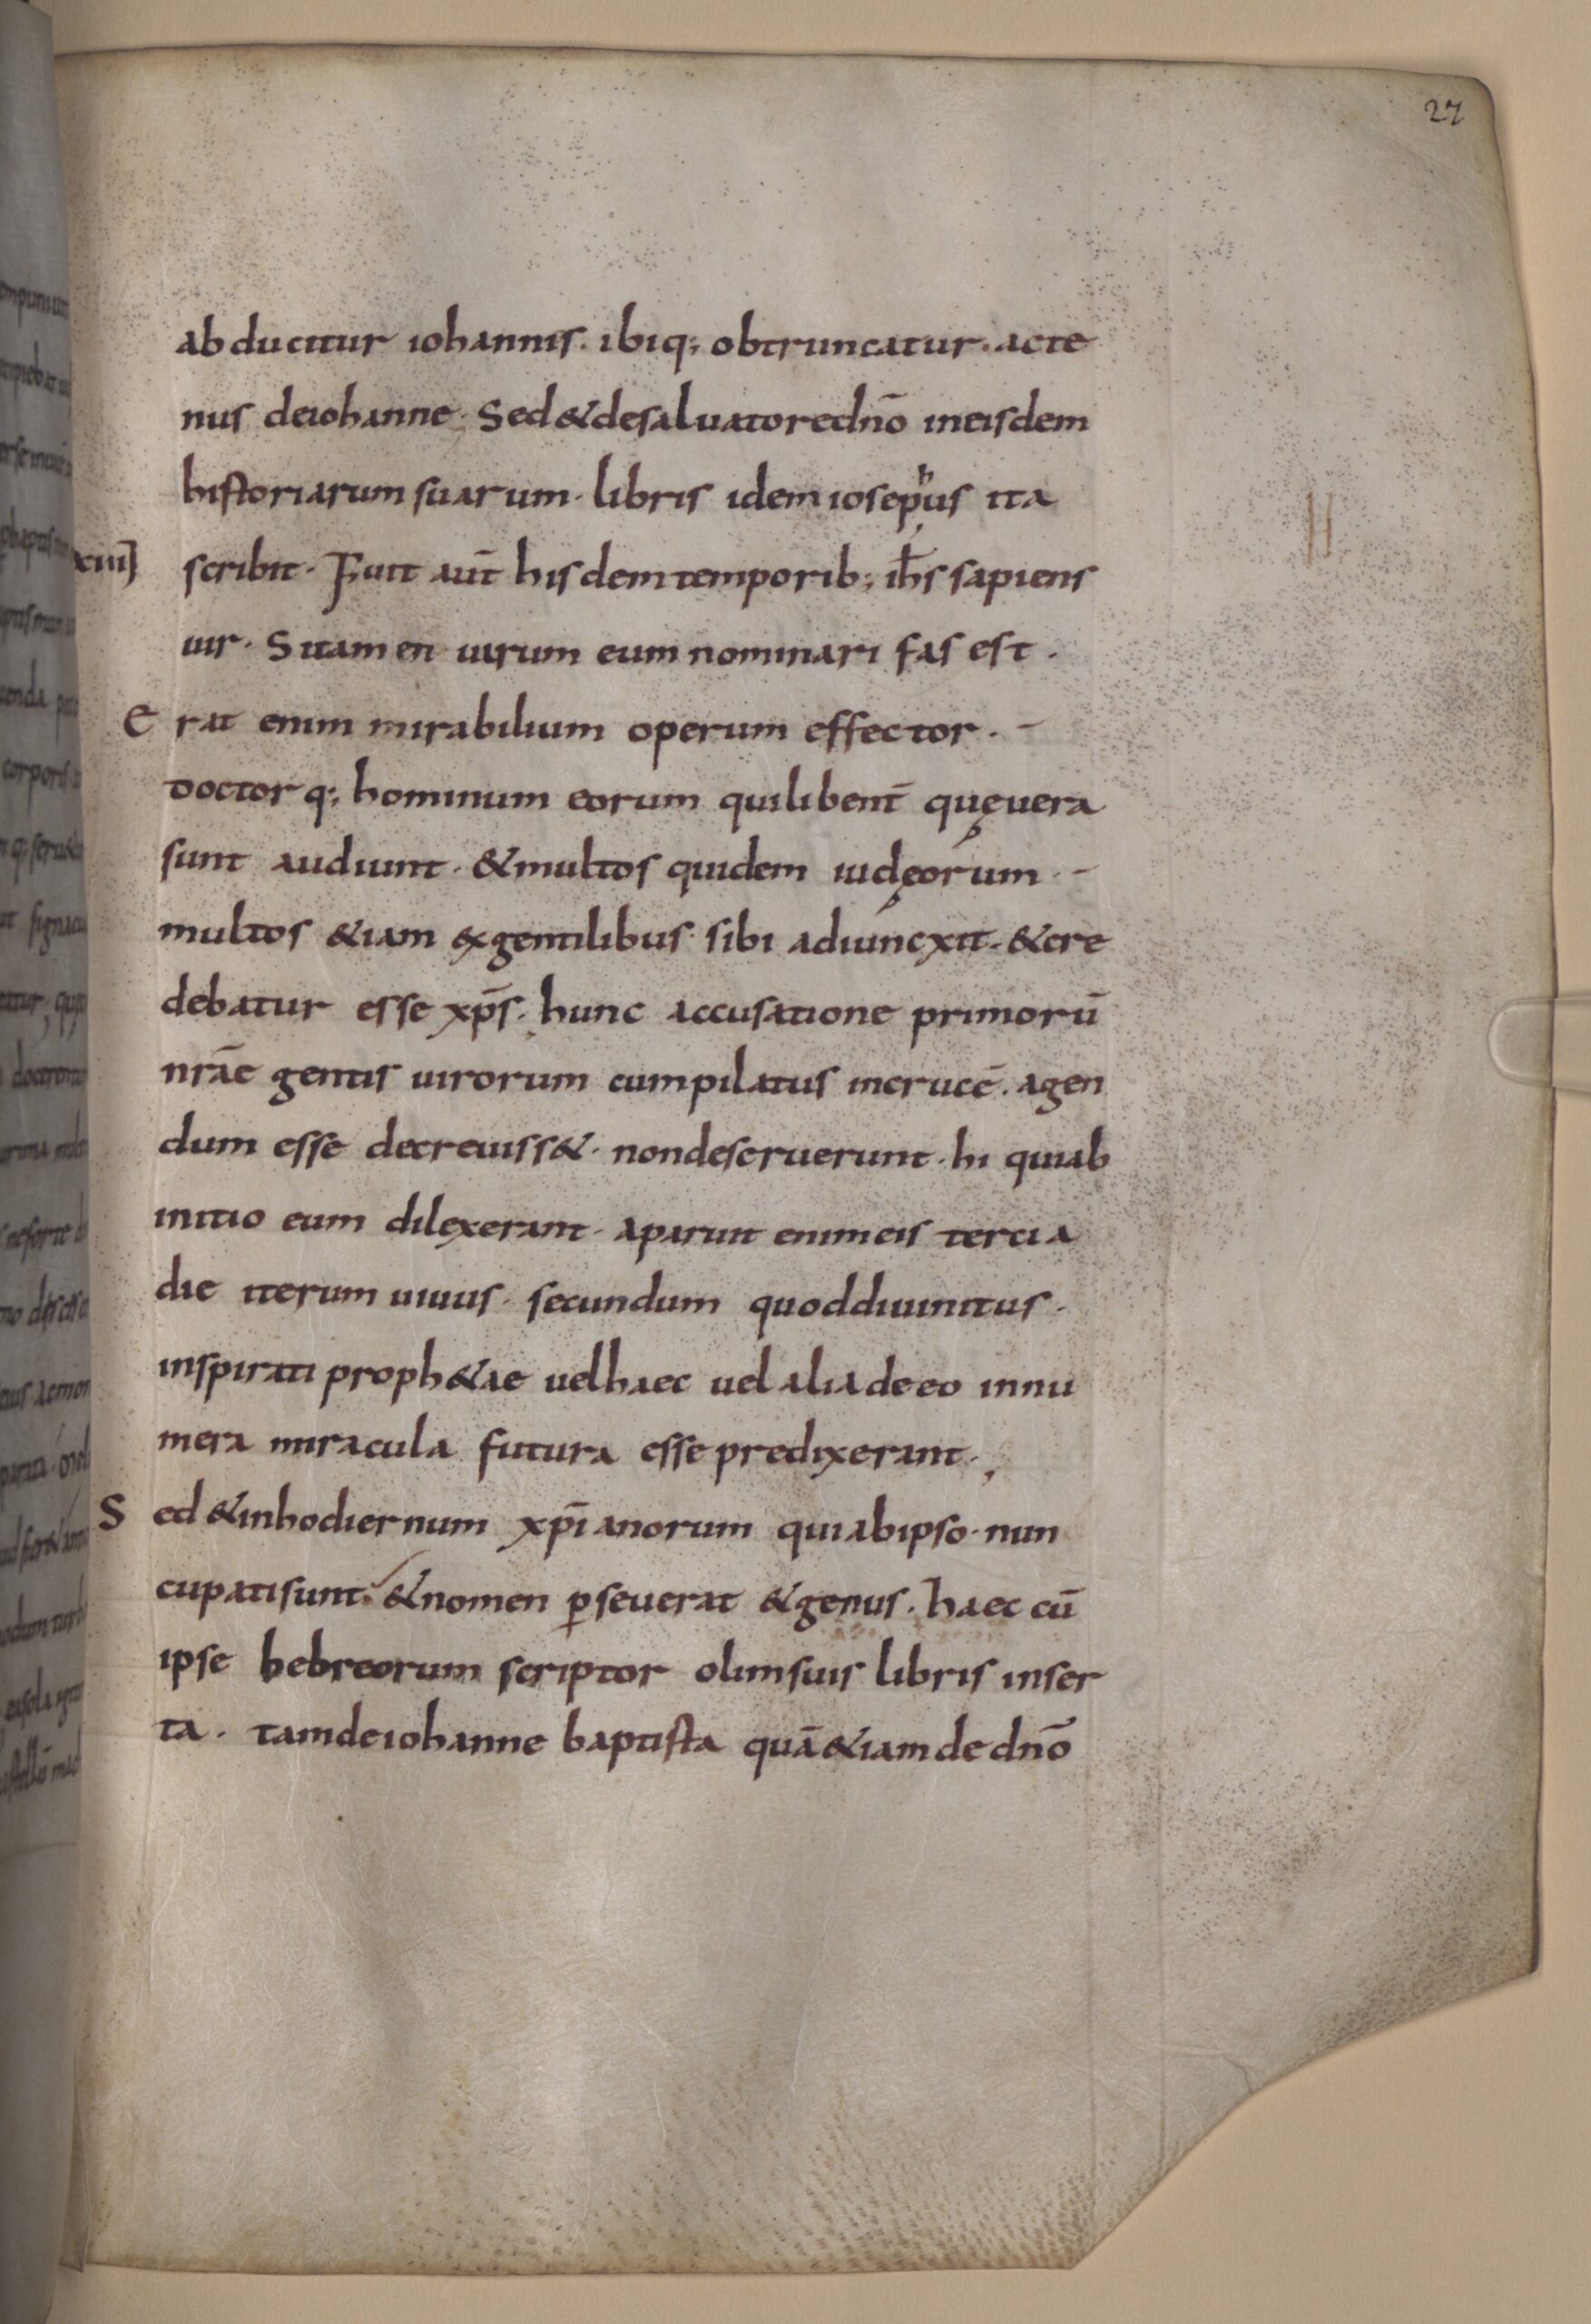 27
abducitur iohannis. ibiq; obtruncatur. acte
nus deiohanne. Sed & desaluatore dnō ineisdem
historiarum suarum. libris idem iosephus ita
xiii] scribit. Fuit aūt hisdem temporib; ih̄s sapiens
uir. Si tamen uirum eum nominari fas est.
Erat enim mirabilium operum effector. -
Doctorq; hominum eorum qui libent̄ quę uera
sunt audiunt. & multos quidem iudęorum. -
multos &iam ex gentilibus. sibi adiuncxit. & cre
debatur esse xp̄s. hunc accusatione primorū
nrāe gentis uirorum cum pilatus incrucē. agen
dum esse decreuiss&. non deseruerunt. hi qui ab
initio eum dilexerant. aparuit enim eis tercia
die iterum uiuus. secundum quod diuinitus.
inspirati proph&ae uel haec uel alia de eo innu
mera miracula futura esse predixerant.,
Sed & inhodiernum xp̄ianorum qui abipso. nun
cupati sunt. & nomen ꝑseuerat & genus. haec cū
ipse hebreorum scriptor olim suis libris inser
ta. tam deiohanne baptista quā &iam de dnō